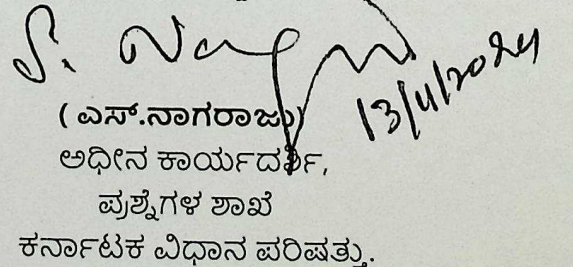 13/11/2024
( ಎಸ್.ನಾಗರಾಜು)
ಅಧೀನ ಕಾರ್ಯದರ್ಶಿ,
ಪ್ರಶ್ನೆಗಳ ಶಾಖೆ
ಕರ್ನಾಟಕ ವಿಧಾನ ಪರಿಷತ್ತು.